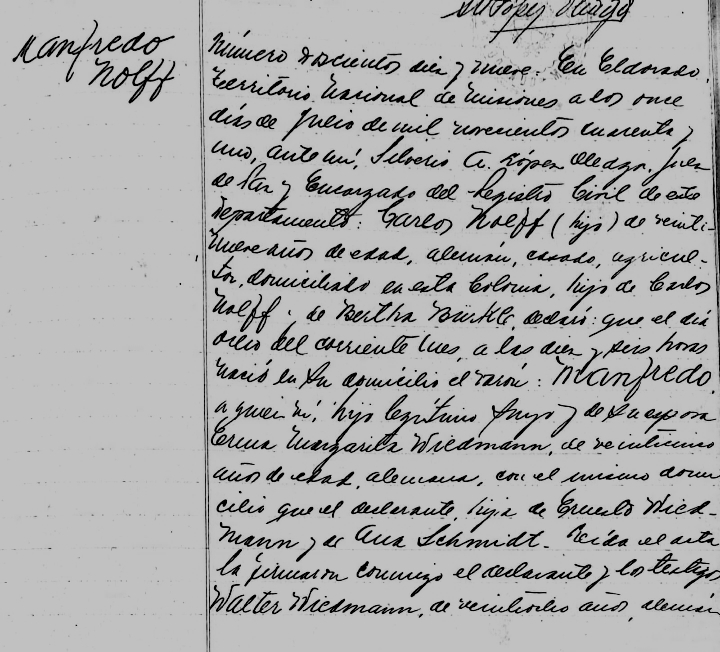 S A López Oledzn
Manfredo
Nolff
Número doscientos diez y nueve. En Eldorado,
Territorio Nacional de Misiones a los once
días de Julio de mil novecientos cuarenta y
uno, ante mí, Silverio A. López Juez
de Paz y Encargado del Registro Civil de este
Departamento: Carlos Nolff (hijo) de veinti-
nueve años de edad, alemán, casado, agricul-
tor, domiciliado en esta Colonia, hijo de Carlos
Nolff y de Bertha declaró: que el día
ocho del corriente mes, a las diez y seis horas
nació en su domicilio el varón: Manfredo,
a quien ví, hijo legítimo suyo y de su esposa
Erna Margarita Wiedmann, de veinticinco
años de edad, alemana, con el mismo domi
cilio que el declarante, hija de Ernesto Wied-
mann y de Ana Schmidt. Leída el acta
la firmaron conmigo el declarante y los testigos
Walter Wiedmann, de veintiocho años, alemán